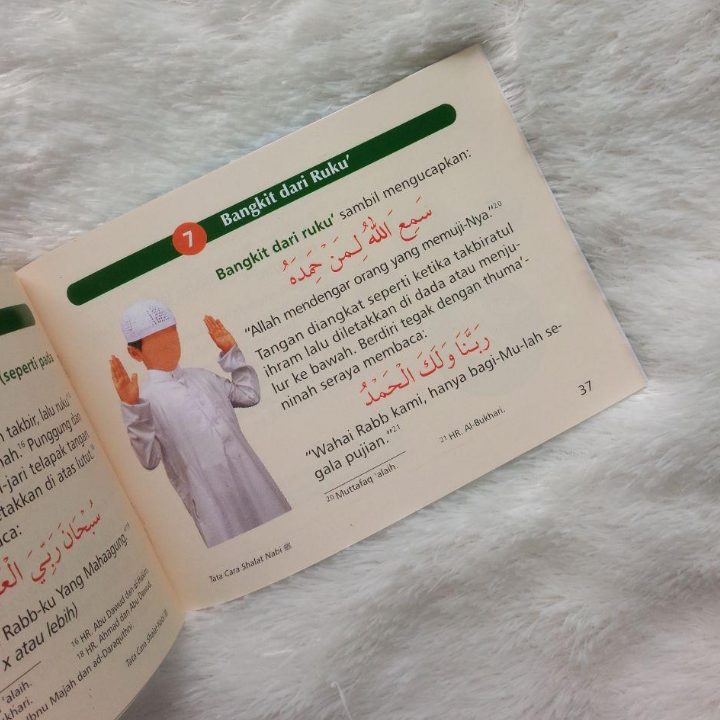 (seperti pada
takbir, lalu ruku'
nah.¹⁶ Punggung dan
i-jari telapak tangan
etakkan di atas lutut.
aca:
سُبْحَانَ رَبِّيَ
Rabb-ku Yang Mahaagung.
x atau lebih)
¹⁶ HR. Abu Dawud dan al-Hakim.
¹⁸ HR. Ahmad dan Abu Dawud.
'alaih.
khari.
Ibnu Majah dan ad-Daraquthni.
Tata Cara Shalat Nabi ﷺ
7 Bangkit dari Ruku'
Bangkit dari ruku' sambil mengucapkan:
سَمِعَ اللهُ لِمَنْ حَمِدَهُ
"Allah mendengar orang yang memuji-Nya."²⁰
Tangan diangkat seperti ketika takbiratul
ihram lalu diletakkan di dada atau menju-
lur ke bawah. Berdiri tegak dengan thuma'-
ninah seraya membaca:
رَبَّنَا وَلَكَ الْحَمْدُ
"Wahai Rabb kami, hanya bagi-Mu-lah se-
gala pujian."²¹
²⁰ Muttafaq 'alaih.
²¹ HR. Al-Bukhari.
Tata Cara Shalat Nabi ﷺ
37